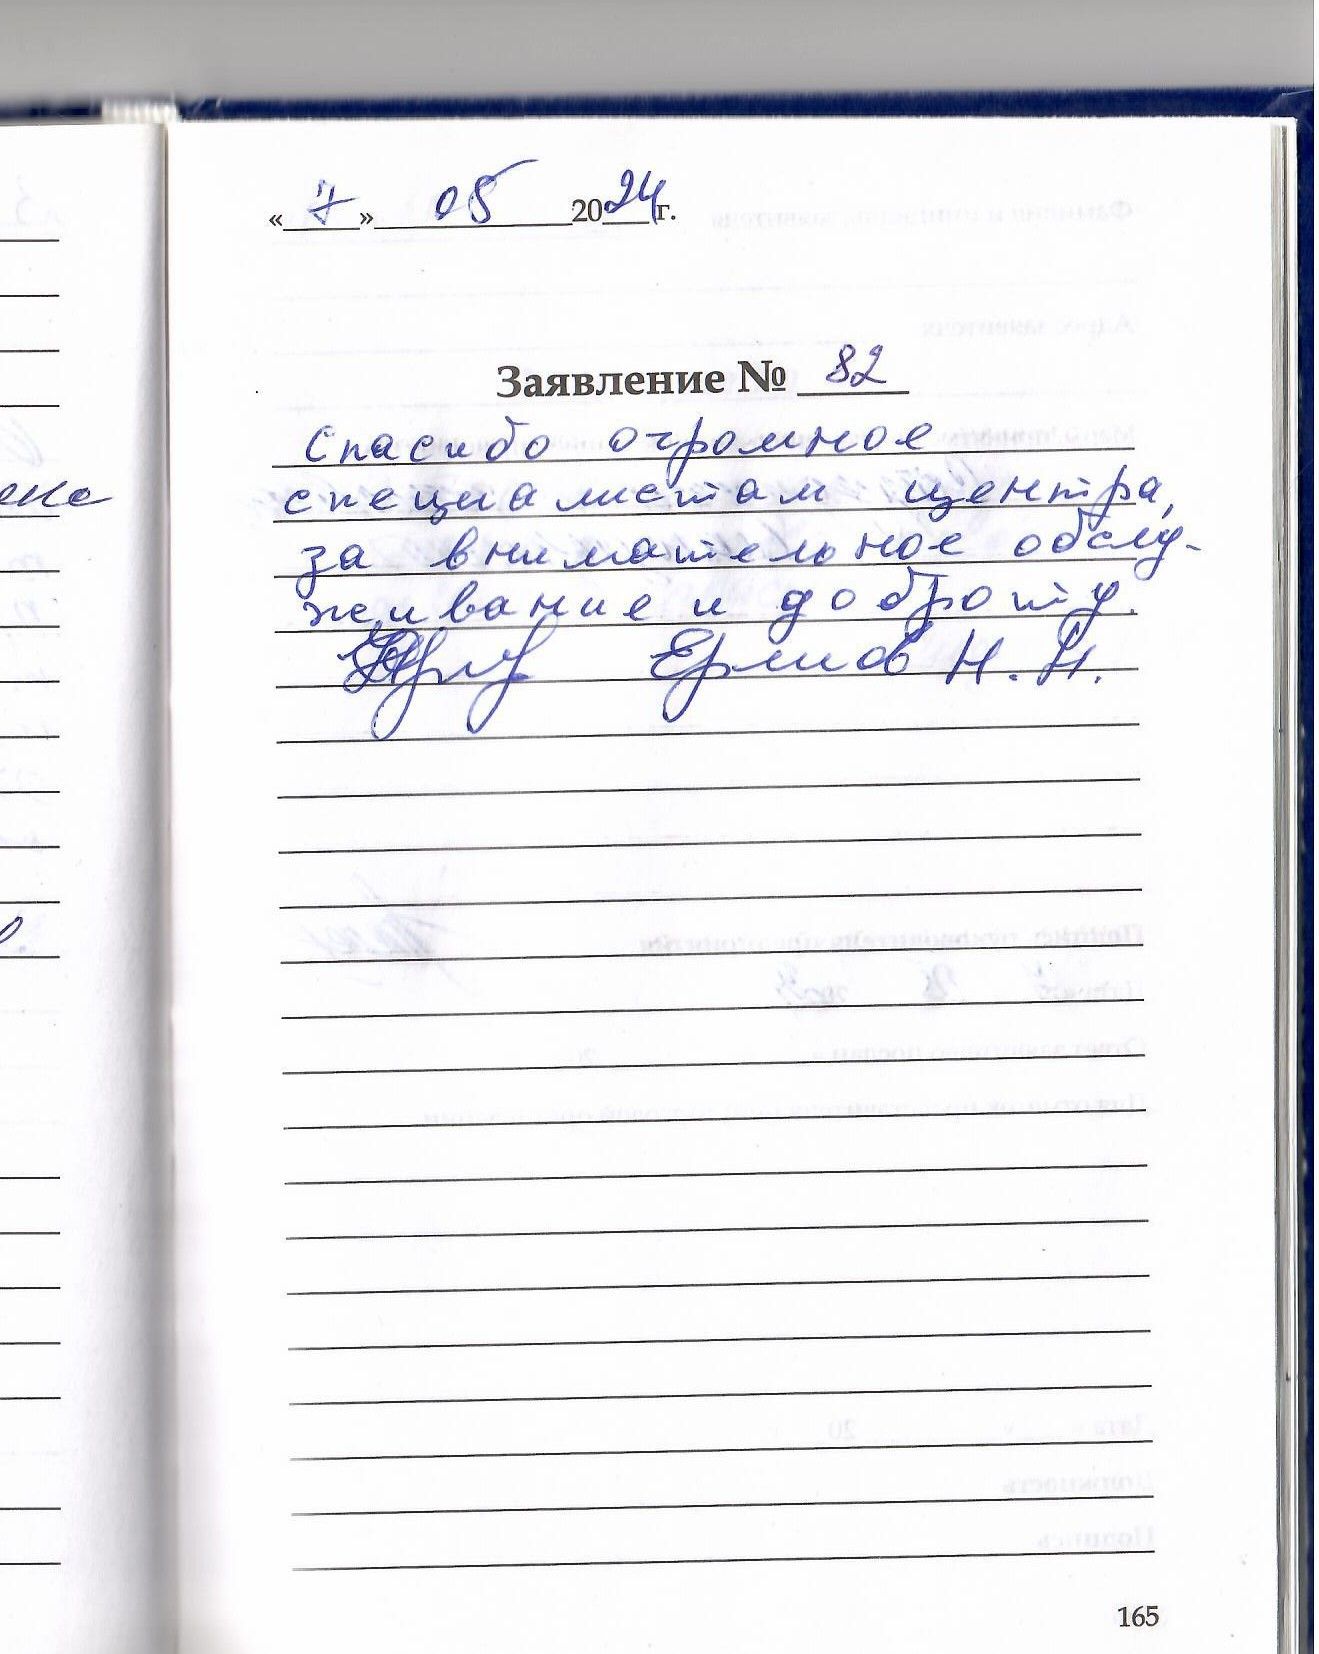 «7» 05 2024г.
Заявление № 82
Спасибо огромное
специалистам центра,
за внимательное обслу-
живание и доброту.
Ермов Н. Н.
165